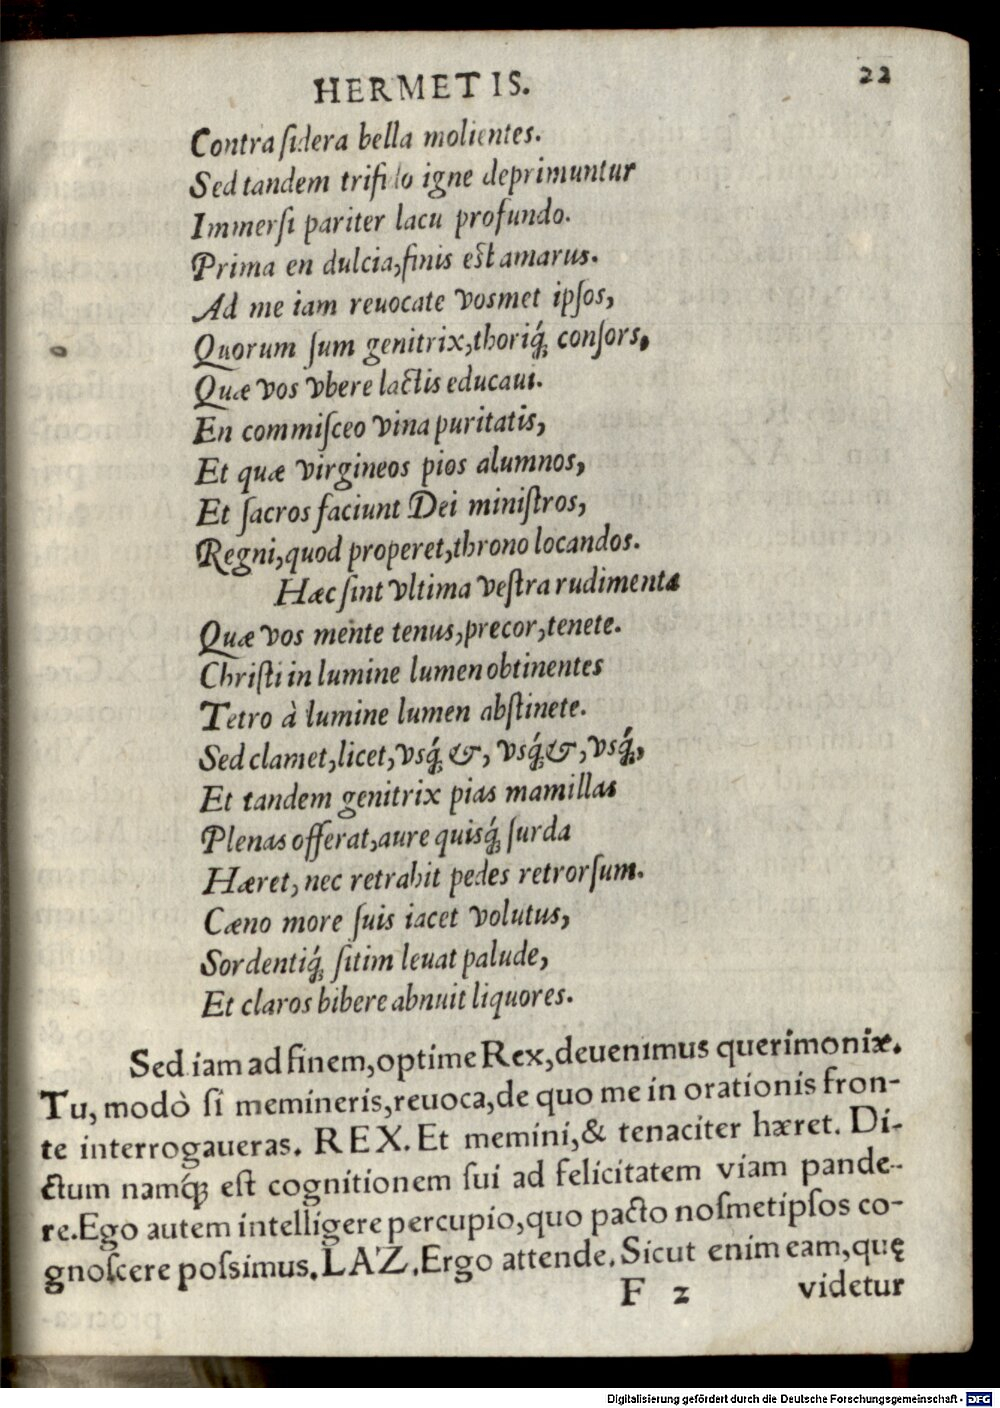 HERMETIS.
22
Contra ſidera bella molientes.
Sed tandem trifido igne deprimuntur
Immerſi pariter lacu profundo.
Prima en dulcia, finis eſt amarus.
Ad me iam reuocate vosmet ipſos,
Quorum ſum genitrix, thoriq́; conſors,
Quæ vos vbere lactis educaui.
En commiſceo vina puritatis,
Et quæ virgineos pios alumnos,
Et ſacros faciunt Dei miniſtros,
Regni, quod properet, throno locandos.
Hæc ſint vltima veſtra rudimenta
Quæ vos mente tenus, precor, tenete.
Chriſti in lumine lumen obtinentes
Tetro à lumine lumen abſtinete.
Sed clamet, licet, vsq́; &, vsq́; &, vsq́;,
Et tandem genitrix pias mamillas
Plenas offerat, aure quisq́; ſurda
Hæret, nec retrahit pedes retrorſum.
Cæno more ſuis iacet volutus,
Sordentiq́; ſitim leuat palude,
Et claros bibere abnuit liquores.
Sed iam ad finem, optime Rex, deuenimus querimoniæ.
Tu, modò ſi memineris, reuoca, de quo me in orationis fron-
te interrogaueras. REX. Et memini, & tenaciter hæret. Di-
ctum namq́; eſt cognitionem ſui ad felicitatem viam pande-
re. Ego autem intelligere percupio, quo pacto noſmetipſos co-
gnoſcere poſsimus. LAZ. Ergo attende. Sicut enim eam, quę
F 2
videtur
Digitalisierung gefördert durch die Deutsche Forschungsgemeinschaft - DFG